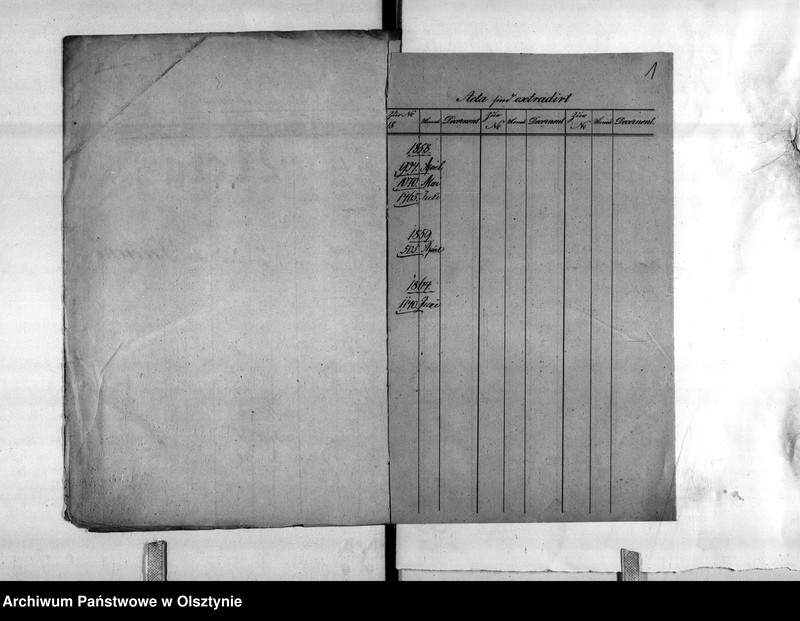 1
Acta sind extradirt
Jour № Monat Decernent Jour Monat Decernent Jour Monat Decernent.
18 № №
1858.
927. April
1070. Mai
1465. Juli
1859
503. April
1864.
1140. Juni
Archiwum Państwowe w Olsztynie